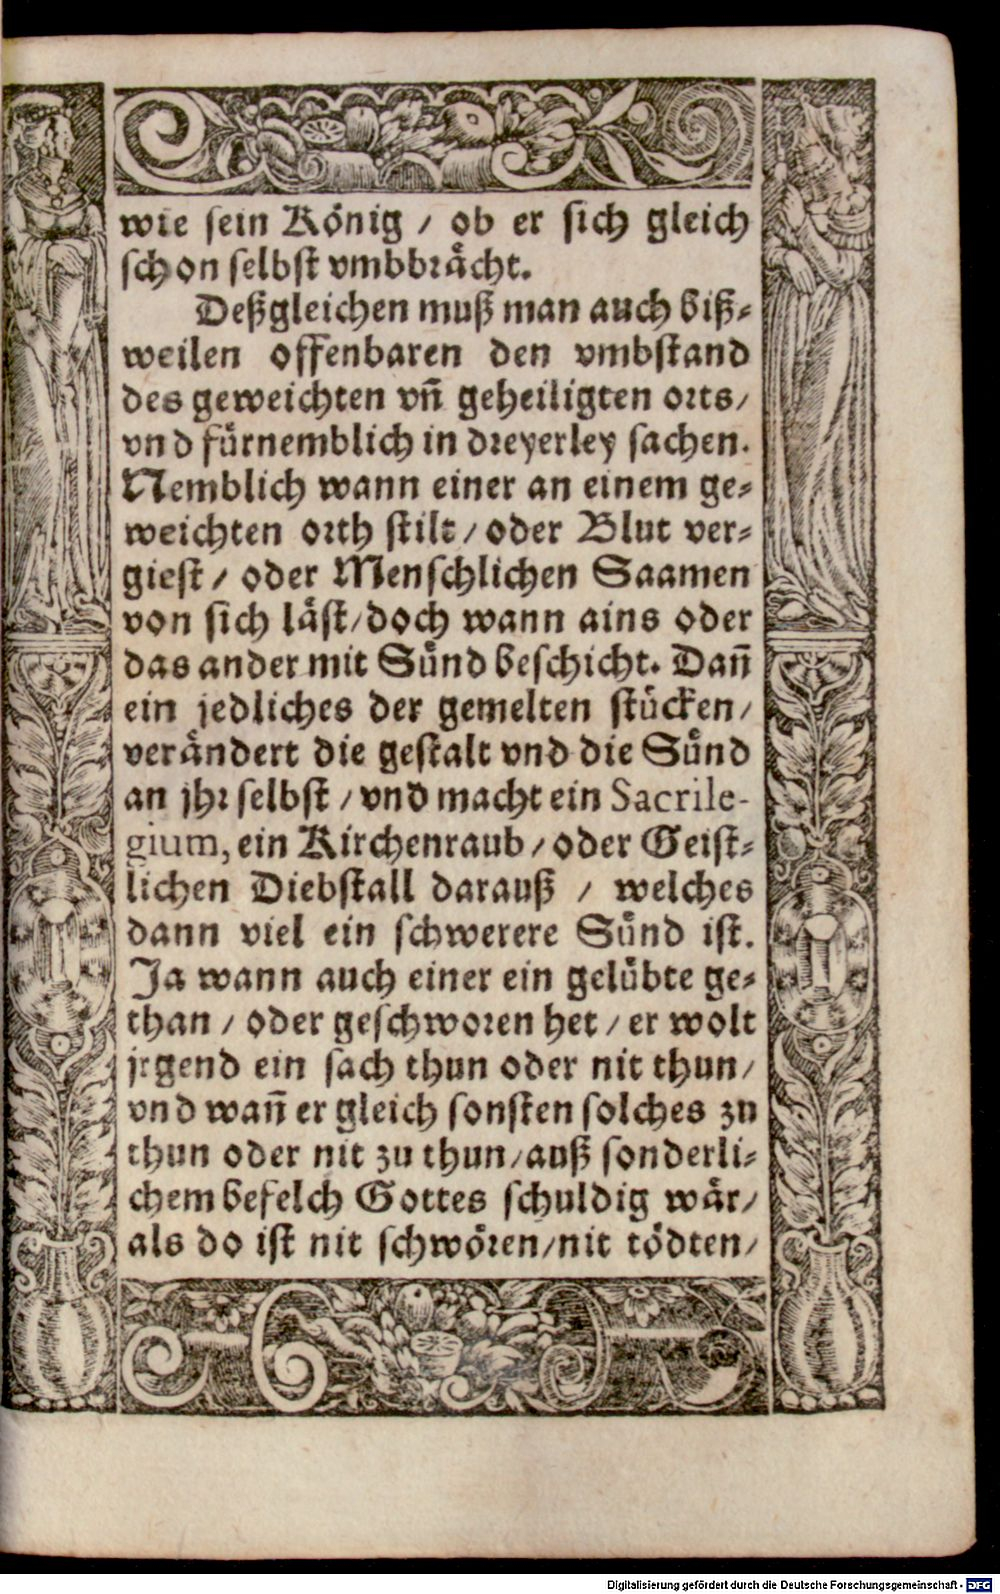 wie sein König / ob er sich gleich
schon selbst vmbbrächt.
Deßgleichen muß man auch biß-
weilen offenbaren den vmbstand
des geweichten vn̄ geheiligten orts/
vnd fürnemblich in dreyerley sachen.
Nemblich wann einer an einem ge-
weichten orth stilt / oder Blut ver-
giest / oder Menschlichen Saamen
von sich läst/doch wann ains oder
das ander mit Sünd beschicht. Dan̄
ein jedliches der gemelten stücken/
verändert die gestalt vnd die Sünd
an jhr selbst / vnd macht ein Sacrile-
gium, ein Kirchenraub / oder Geist-
lichen Diebstall darauß / welches
dann viel ein schwerere Sünd ist.
Ja wann auch einer ein gelübte ge-
than / oder geschworen het / er wolt
jrgend ein sach thun oder nit thun/
vnd wan̄ er gleich sonsten solches zu
thun oder nit zu thun/auß sonderli-
chem befelch Gottes schuldig wär/
als do ist nit schwören/nit tödten/
Digitalisierung gefördert durch die Deutsche Forschungsgemeinschaft - DFG